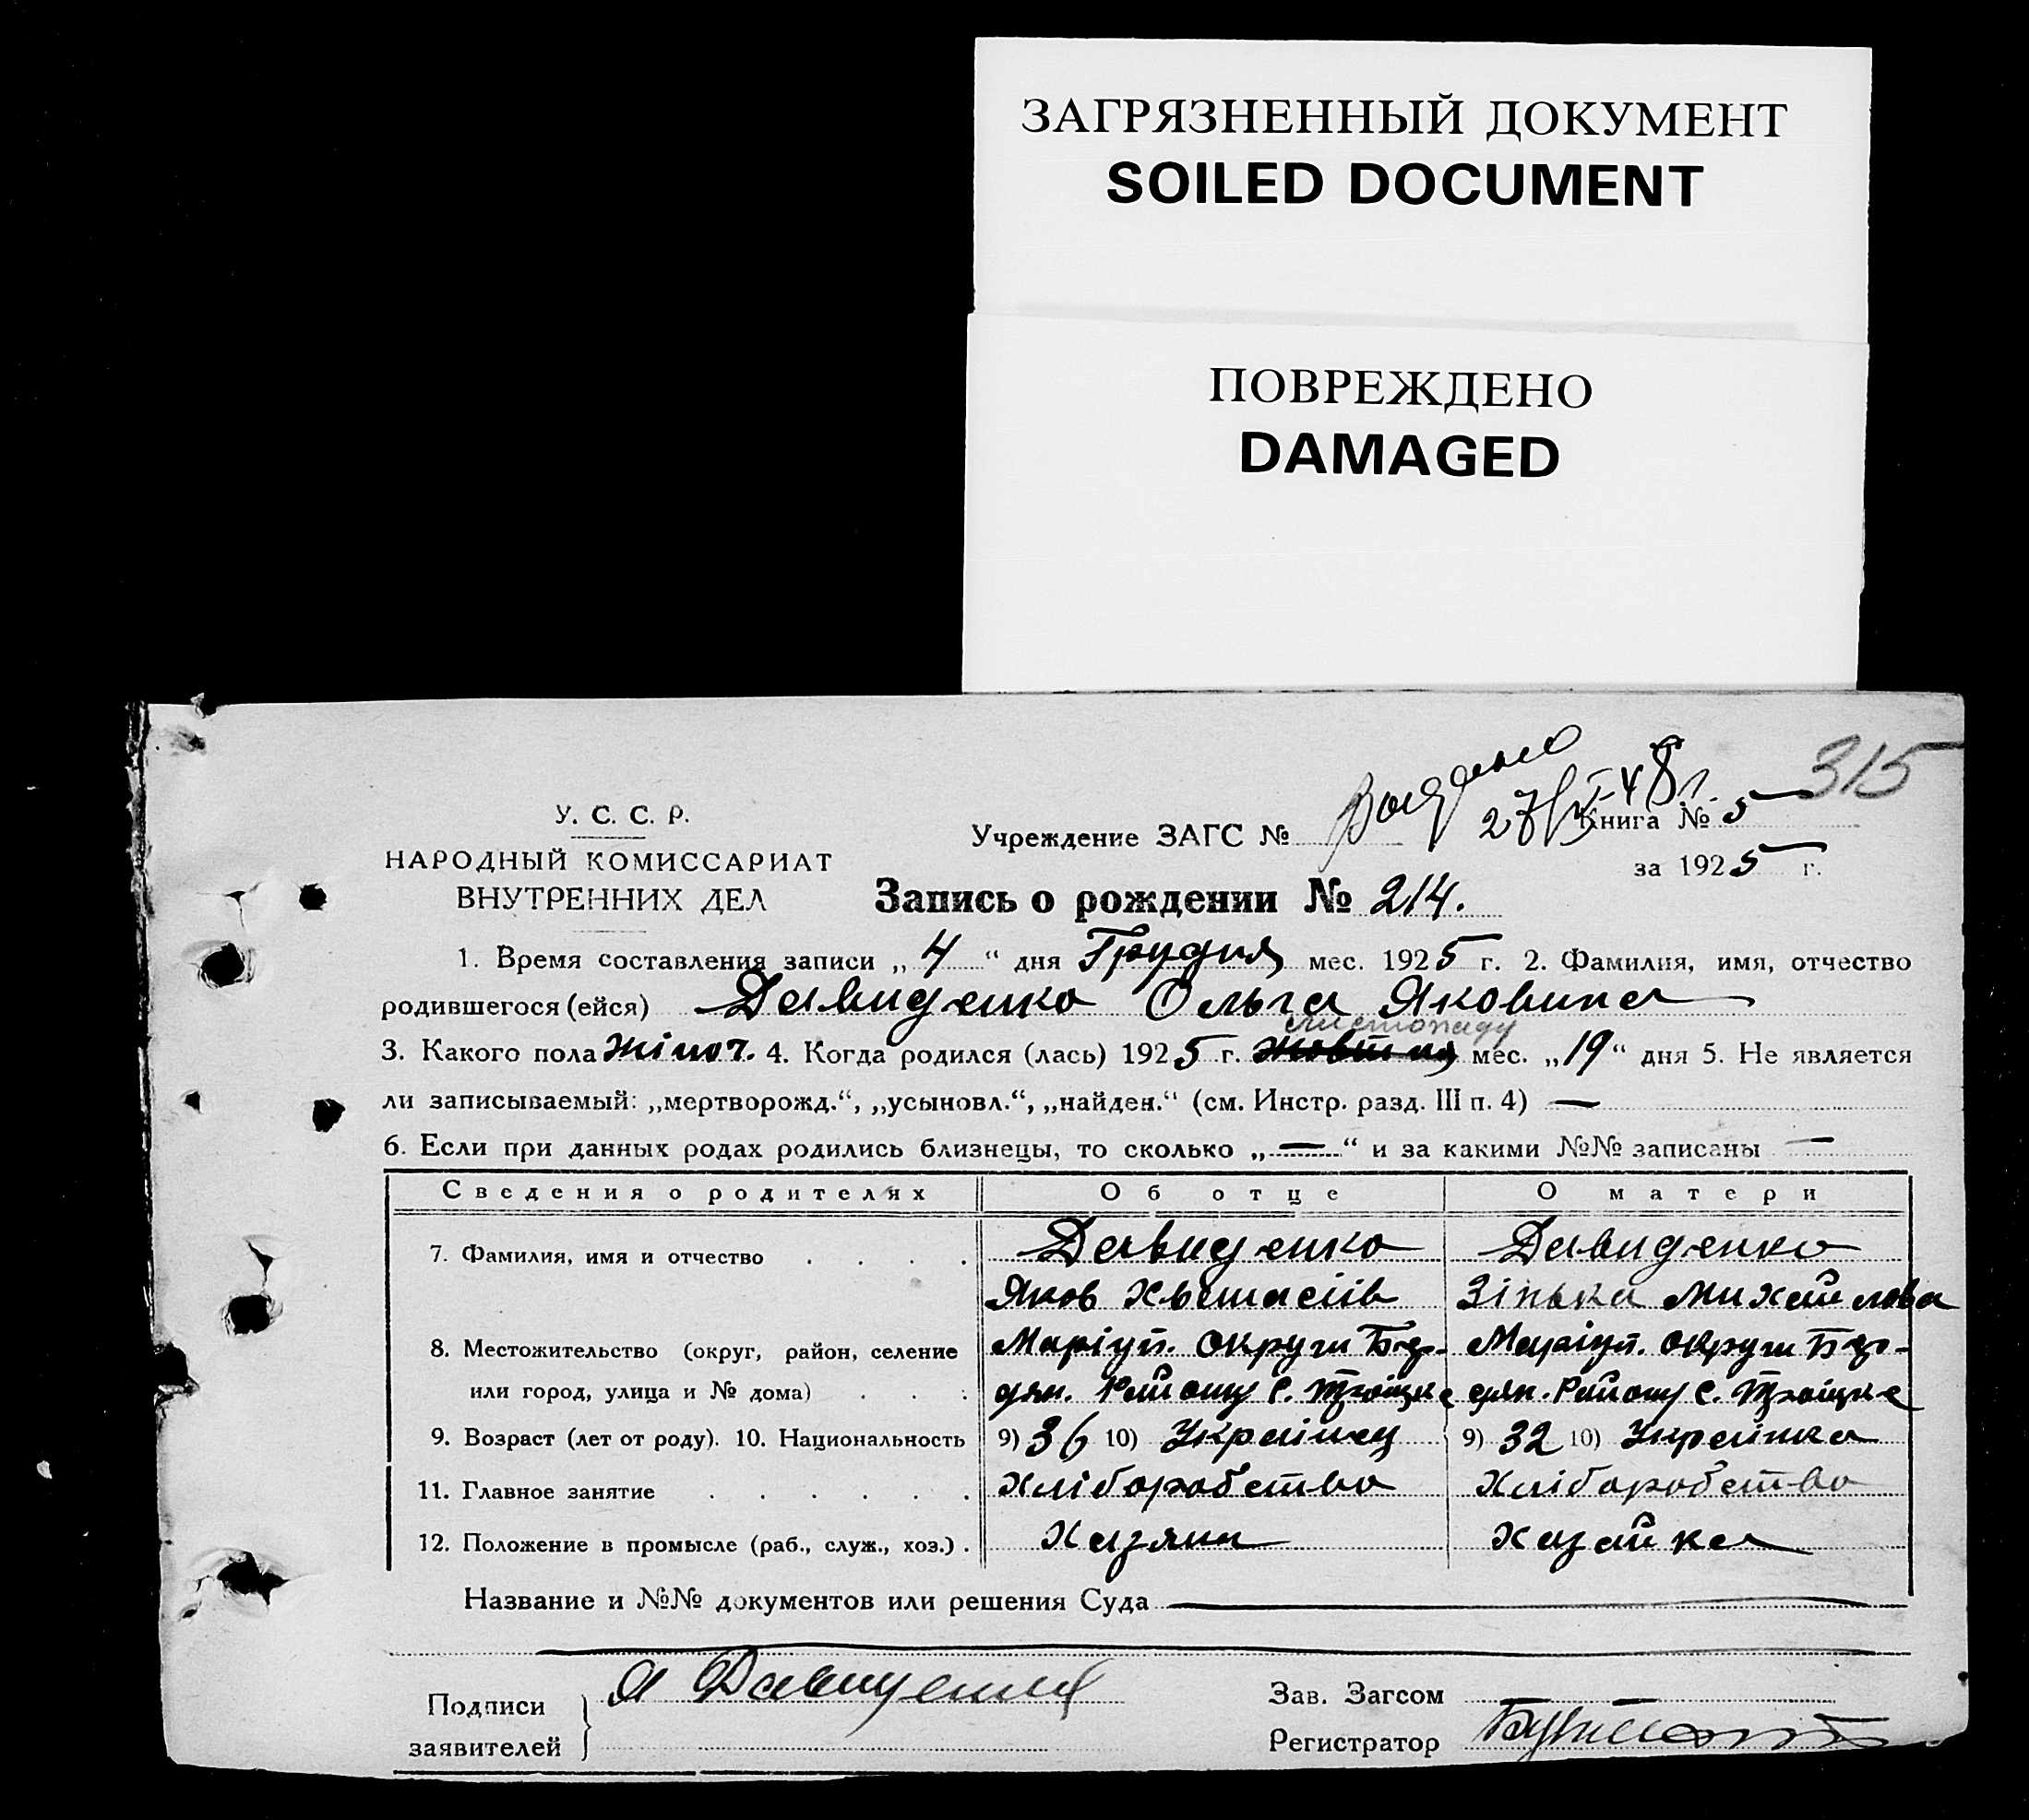 ЗАГРЯЗНЕННЫЙ ДОКУМЕНТ
SOILED DOCUMENT
ПОВРЕЖДЕНО
DAMAGED
315
27/VI-48 г.
У. С. С. Р.
НАРОДНЫЙ КОМИССАРИАТ
ВНУТРЕННИХ ДЕЛ
Учреждение ЗАГС №
Книга № 5
за 1925 г.
Запись о рождении № 214.
1. Время составления записи „4“ дня Грудня мес. 1925 г. 2. Фамилия, имя, отчество
родившегося (ейся) Давиденко Ольга Яковина
листопаду
3. Какого пола жіноч. 4. Когда родился (лась) 1925 г. жовтня мес. „19“ дня 5. Не является
ли записываемый: „мертворожд.“, „усыновл.“, „найден.“ (см. Инстр. разд. III п. 4) —
6. Если при данных родах родились близнецы, то сколько „—“ и за какими №№ записаны —
Сведения о родителях Об отце О матери
7. Фамилия, имя и отчество . . . . Давиденко Давиденко
Яков Зінька Михайлова
8. Местожительство (округ, район, селение Маріуп. округи Бер- Маріуп. округи Бер-
или город, улица и № дома) . . . дян. Району с. Троіцке дян. Району с. Троіцке
9. Возраст (лет от роду). 10. Национальность 9) 36 10) Украінец 9) 32 10) Украінка
11. Главное занятие . . . . . . Хліборобство Хліборобство
12. Положение в промысле (раб., служ., хоз.) . Хазяин хазайка
Название и №№ документов или решения Суда
Подписи
заявителей
Я Давиденко
Зав. Загсом
Регистратор